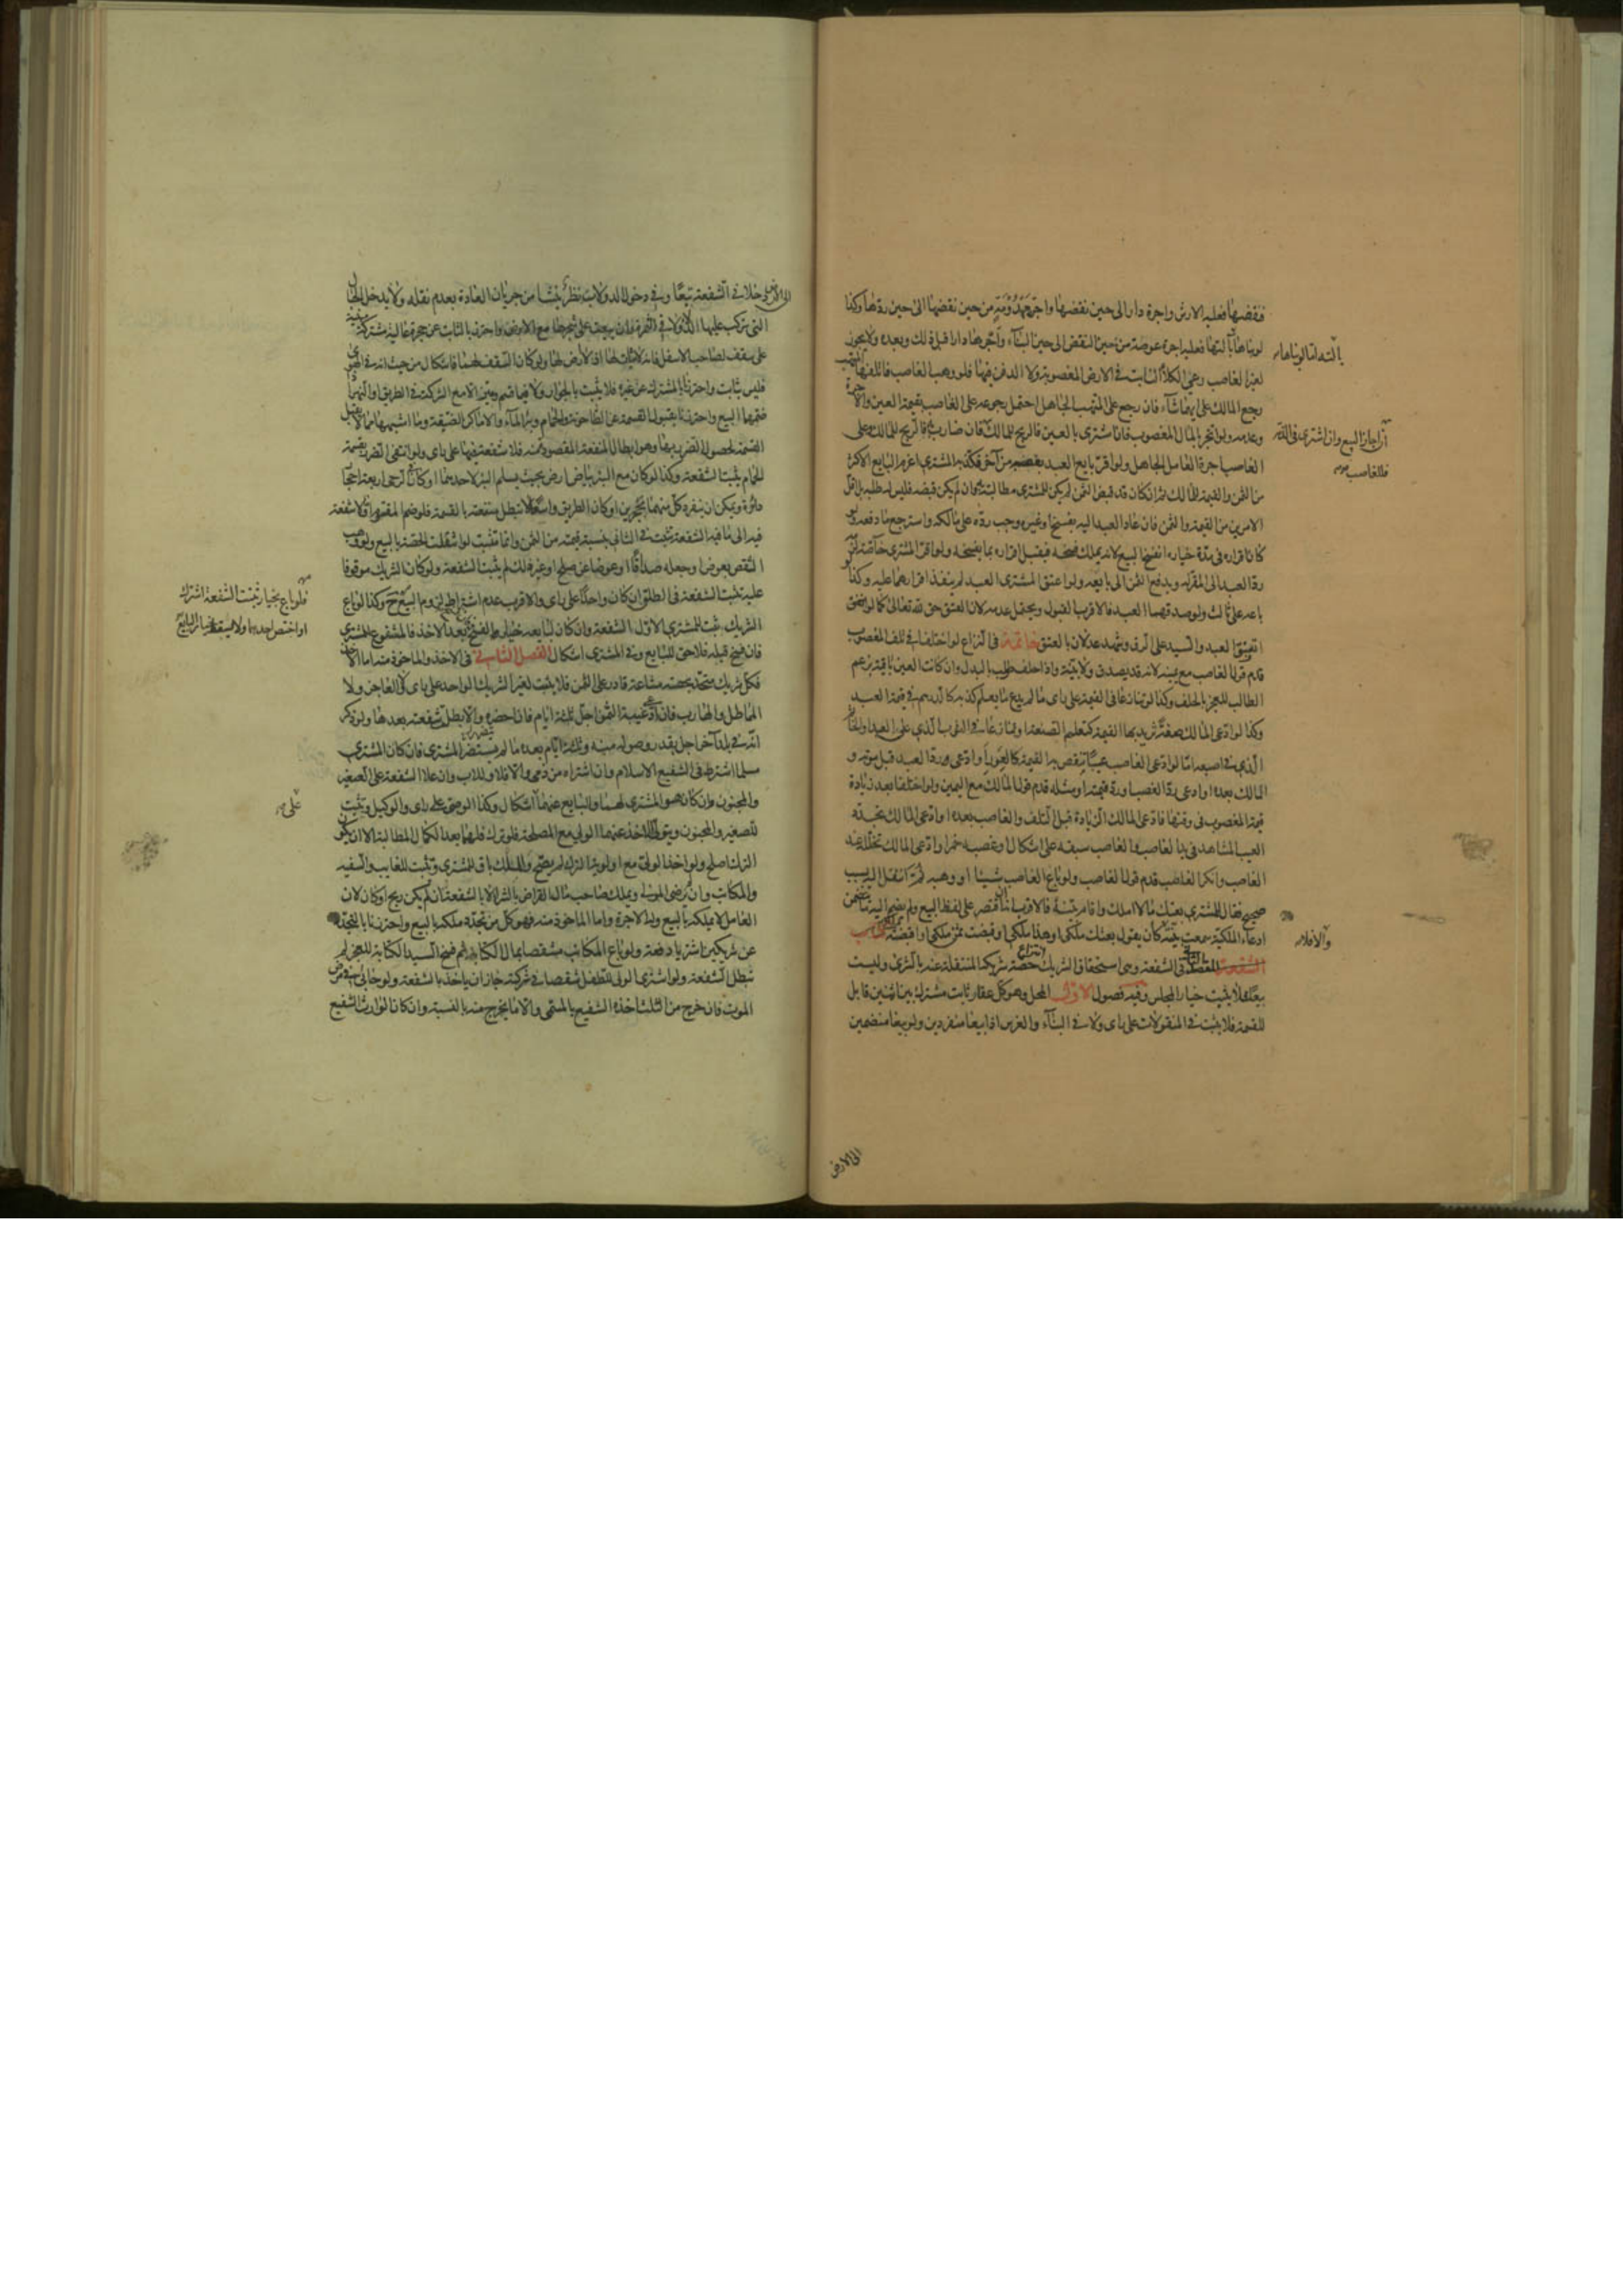 فنقضها فعليه الارش واجرة دار الى حين نقضها واجرة مهدومة من حين نقضها الى حين ردها وكذا
لو بناها بآلتها فعليه اجرة عرصة من حين النقض الى حين البناء واجرتها دارا قبل ذلك وبعده ولا يجوز
لغير الغاصب رعى الكلاء النابت في الارض المغصوبة ولا الدفن فيها فلو وهب الغاصب فاتلفها المتهب
رجع المالك على ايهما شاء فان رجع على المتهب الجاهل احتمل رجوعه على الغاصب بقيمة العين والاجرة
وعدمه ولو اتجر بالمال المغصوب فان اشترى بالعين فالربح للمالك فان ضارب به فالربح للمالك وعلى
الغاصب اجرة العامل الجاهل ولو اقر بايع العبد بغصبه من آخر فكذبه المشترى اغرم البايع الاكثر
من الثمن والقيمة للمالك ثم ان كان قد قبض الثمن لم يكن للمشترى مطالبته وان لم يكن قبضه فليس له طلبه بل اقل
الامرين من القيمة والثمن فان عاد العبد اليه بفسخ او غيره وجب رده على مالكه واسترجع ما دفعه ولو
كان اقراره في مدة خياره انفسخ البيع لانه يملك فسخه فيقبل اقراره بما يفسخه ولو اقر المشترى خاصة لزمه
رد العبد الى المقر له ويدفع الثمن الى بايعه ولو اعتق المشترى العبد لم ينفذ اقرارهما عليه وكذا لو
باعه على ثالث ولو صدقهما العبد فالاقرب القبول ويحتمل عدمه لان العتق حق لله تعالى كما لو اتفق
العبد والسيد على الرق وشهد عدلان بالعتق خاتمة في النزاع لو اختلفا في تلف المغصوب
قدم قول الغاصب مع يمينه لانه قد يصدق ولا بينة واذا حلف طلب بالبدل وان كانت العين باقية بزعم
الطالب للعجز بالحلف وكذا لو تنازعا في القيمة على راى ما لم يدع ما يعلم كذبه كالدرهم في قيمة العبد
وكذا لو ادعى المالك صفة يزيد بها القيمة كتعليم الصنعة او تنازعا في الثوب الذي على العبد او الخاتم
الذي في اصبعه اما لو ادعى الغاصب عيبا تنقص به القيمة كالعور او ادعى رد العبد قبل موته و
المالك بعده او ادعى رد الغصب او رد قيمته او مثله قدم قول المالك مع اليمين ولو اختلفا بعد زيادة
قيمة المغصوب في وقتها فادعى المالك الزيادة قبل التلف والغاصب بعده او ادعى المالك تجدد
العيب المشاهد في يد الغاصب والغاصب سبقه على اشكال او غصبه خمرا وادعى المالك تخلله عند
الغاصب وانكر الغاصب قدم قول الغاصب ولو باع الغاصب شيئا او وهبه ثم انتقل اليه بسبب
صحيح فقال للمشترى بعتك ما لا املك واقام بينة فالاقرب انه ان اقتصر على لفظ البيع ولم يضم اليه ما يتضمن
ادعاء الملكية سمعت بينته كان يقول بعتك ملكى او هذا ملكى او قبضت ثمن ملكى او اقبضته
المقصد الثاني في الشفعة وهى استحقاق الشريك انتزاع حصة شريكه المنتقلة عنه بالشرى وليست
بيعا فلا يثبت خيار المجلس وفيه فصول الاول المحل وهو كل عقار ثابت مشترك بين اثنين قابل
للقسمة فلا يثبت في المنقولات على راى ولا في البناء والغرس اذا بيعا منفردين ولو بيعا منضمين
بآلته اما لو بناها
ان اجاز البيع وان اشترى في الذمة
فللغاصب
والا فلا
الى الارض
الى الارض دخلا في الشفعة تبعا وفي دخول الدولاب نظر ينشأ من جريان العادة بعدم نقله ولا يدخل الحبال
التي تركب عليها الدلاء ولا في الثمرة وان بيعت على شجرها مع الارض واحترز بالثابت عن حجرة عالية مشتركة مبنية
على سقف لصاحب الاسفل فانه لا ثبات لها اذ لا ارض لها ولو كان السقف لهما فاشكال من حيث انه في الهوى
فليس بثابت واحترزنا بالمشترك عن غيره فلا يثبت بالجوار ولا فيما قسم وميز الا مع الشركة في الطريق او النهر اذا
ضمهما البيع واحترزنا بقبول القسمة عن الطاحونة والحمام وبئر الماء والاماكن الضيقة وما اشبهها مما لا يقبل
القسمة لحصول الضرر بها وهو ابطال المنفعة المقصودة منه فلا شفعة فيها على راى ولو انتفى الضرر بقسمة
الحمام يثبت الشفعة وكذا لو كان مع البئر بياض ارض بحيث يسلم البئر لاحدهما او كان في الرحى اربعة احجار
دائرة ويمكن ان ينفرد كل منهما بحجرين او كان الطريق واسعا لا تبطل منفعته بالقسمة فلو ضم المقسوم او ما لا شفعة
فيه الى ما فيه الشفعة تثبت في الثاني بنسبة قيمته من الثمن وانما تثبت لو انتقلت الحصة بالبيع ولو وهب
الشقص بعوض او جعله صداقا او عوضا عن صلح او غير ذلك لم يثبت الشفعة ولو كان الشريك موقوفا
عليه تثبت الشفعة في الطلق ان كان واحدا على راى والاقرب عدم اشتراط لزوم البيع وكذا لو باع
الشريك تثبت للمشترى الاول الشفعة وان كان لبايعه خيار الفسخ فان فسخ بعد الاخذ فالمشفوع للمشترى
فان فسخ قبله فلا حق للبايع وفي المشترى اشكال الفصل الثاني في الاخذ والماخوذ منه اما الآخذ
فكل شريك متحد بحصة مشاعة قادر على الثمن فلا يثبت لغير الشريك الواحد على راى ولا العاجز ولا
المماطل والهارب فان ادعى غيبة الثمن اجل ثلثة ايام فان احضره والا بطلت شفعته بعدها ولو ذكر
انه في بلد آخر اجل بقدر وصوله منه وثلثة ايام بعده ما لم يستضر المشترى فان كان المشترى
مسلما اشترط في الشفيع الاسلام وان اشتراه من ذمى والا فلا وللاب وان علا الشفعة على الصغير
والمجنون وان كان هو المشترى لهما او البايع عنهما اشكال وكذا الوصى على راى والوكيل وتثبت
للصغير والمجنون ويتولى الاخذ عنهما الولى مع المصلحة فلو ترك فلهما بعد الكمال المطالبة الا ان يكون
الترك اصلح ولو اخذ الولى مع اولوية الترك لم يصح والملك باق للمشترى وتثبت للغايب والسفيه
والمكاتب وان لم يرض المولى ويملك صاحب مال القراض بالشرا لا بالشفعة ان لم يكن ربح او كان لان
العامل لا يملكه بالبيع وله الاجرة واما الماخوذ منه فهو كل من تجدد ملكه بالبيع واحترزنا بالتجدد
عن شريكين اشتريا دفعة ولو باع المكاتب شقصا بمال الكتابة ثم فسخ السيد الكتابة للعجز لم
تبطل الشفعة ولو اشترى الولى للطفل شقصا في شركته جاز ان ياخذ بالشفعة ولو حابى في مرض
الموت فان خرج من الثلث اخذه الشفيع بالمسمى والا ما يخرج منه بالنسبة وان كان الوارث الشفيع
فلو باع بخيار تثبت الشفعة اشترك
او اختص احدهما ولا يسقط خيار البايع
على